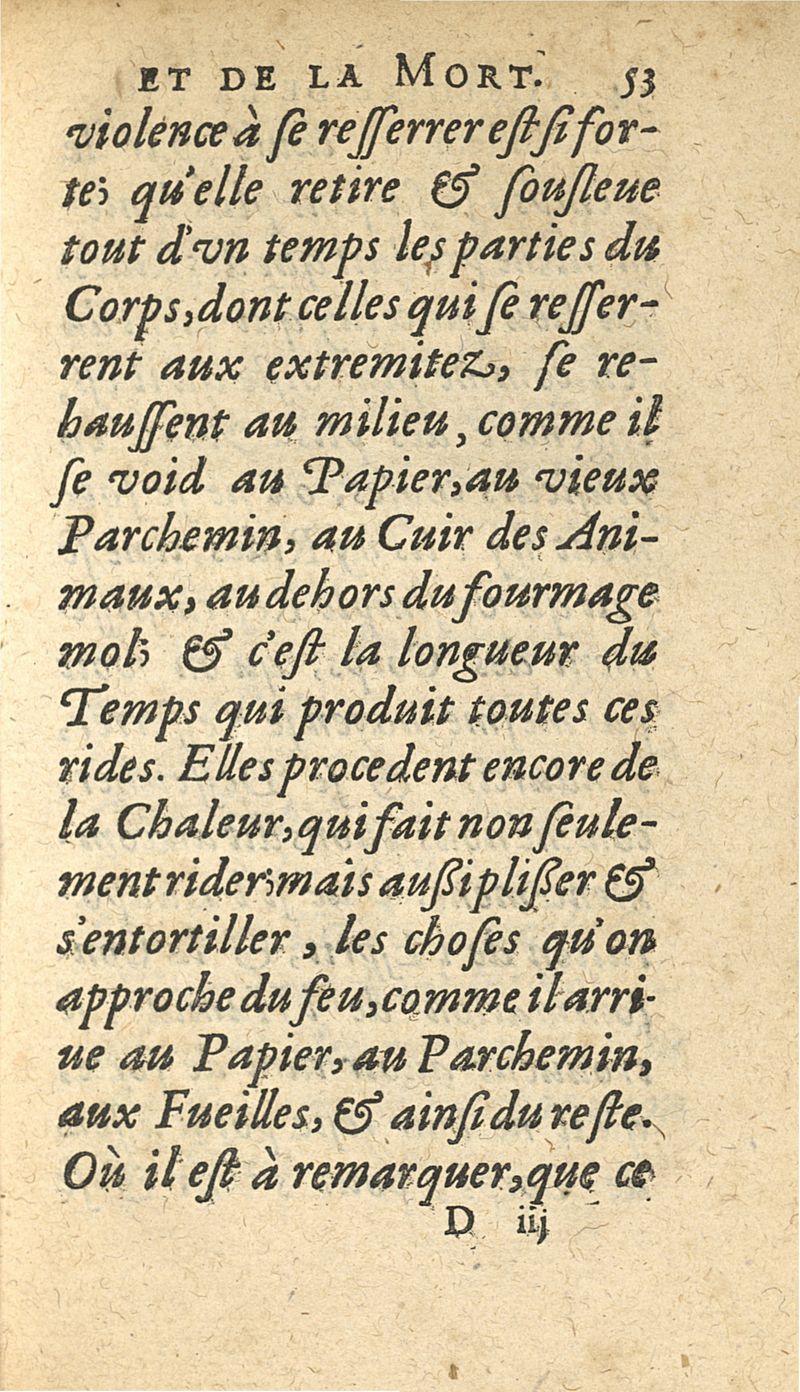 ET DE LA MORT. 53
violence à ſe reſſerrer eſt ſi for-
te; qu'elle retire & ſouſleue
tout d'vn temps les parties du
Corps, dont celles qui ſe reſſer-
rent aux extremitez, ſe re-
hauſſent au milieu, comme il
ſe void au Papier, au vieux
Parchemin, au Cuir des Ani-
maux, au dehors du fourmage
mol; & c'eſt la longueur du
Temps qui produit toutes ces
rides. Elles procedent encore de
la Chaleur, qui fait non ſeule-
ment rider; mais außi plißer &
s'entortiller, les choſes qu'on
approche du feu, comme il arri-
ue au Papier, au Parchemin,
aux Fueilles, & ainſi du reſte.
Où il eſt à remarquer, que ce
D iij